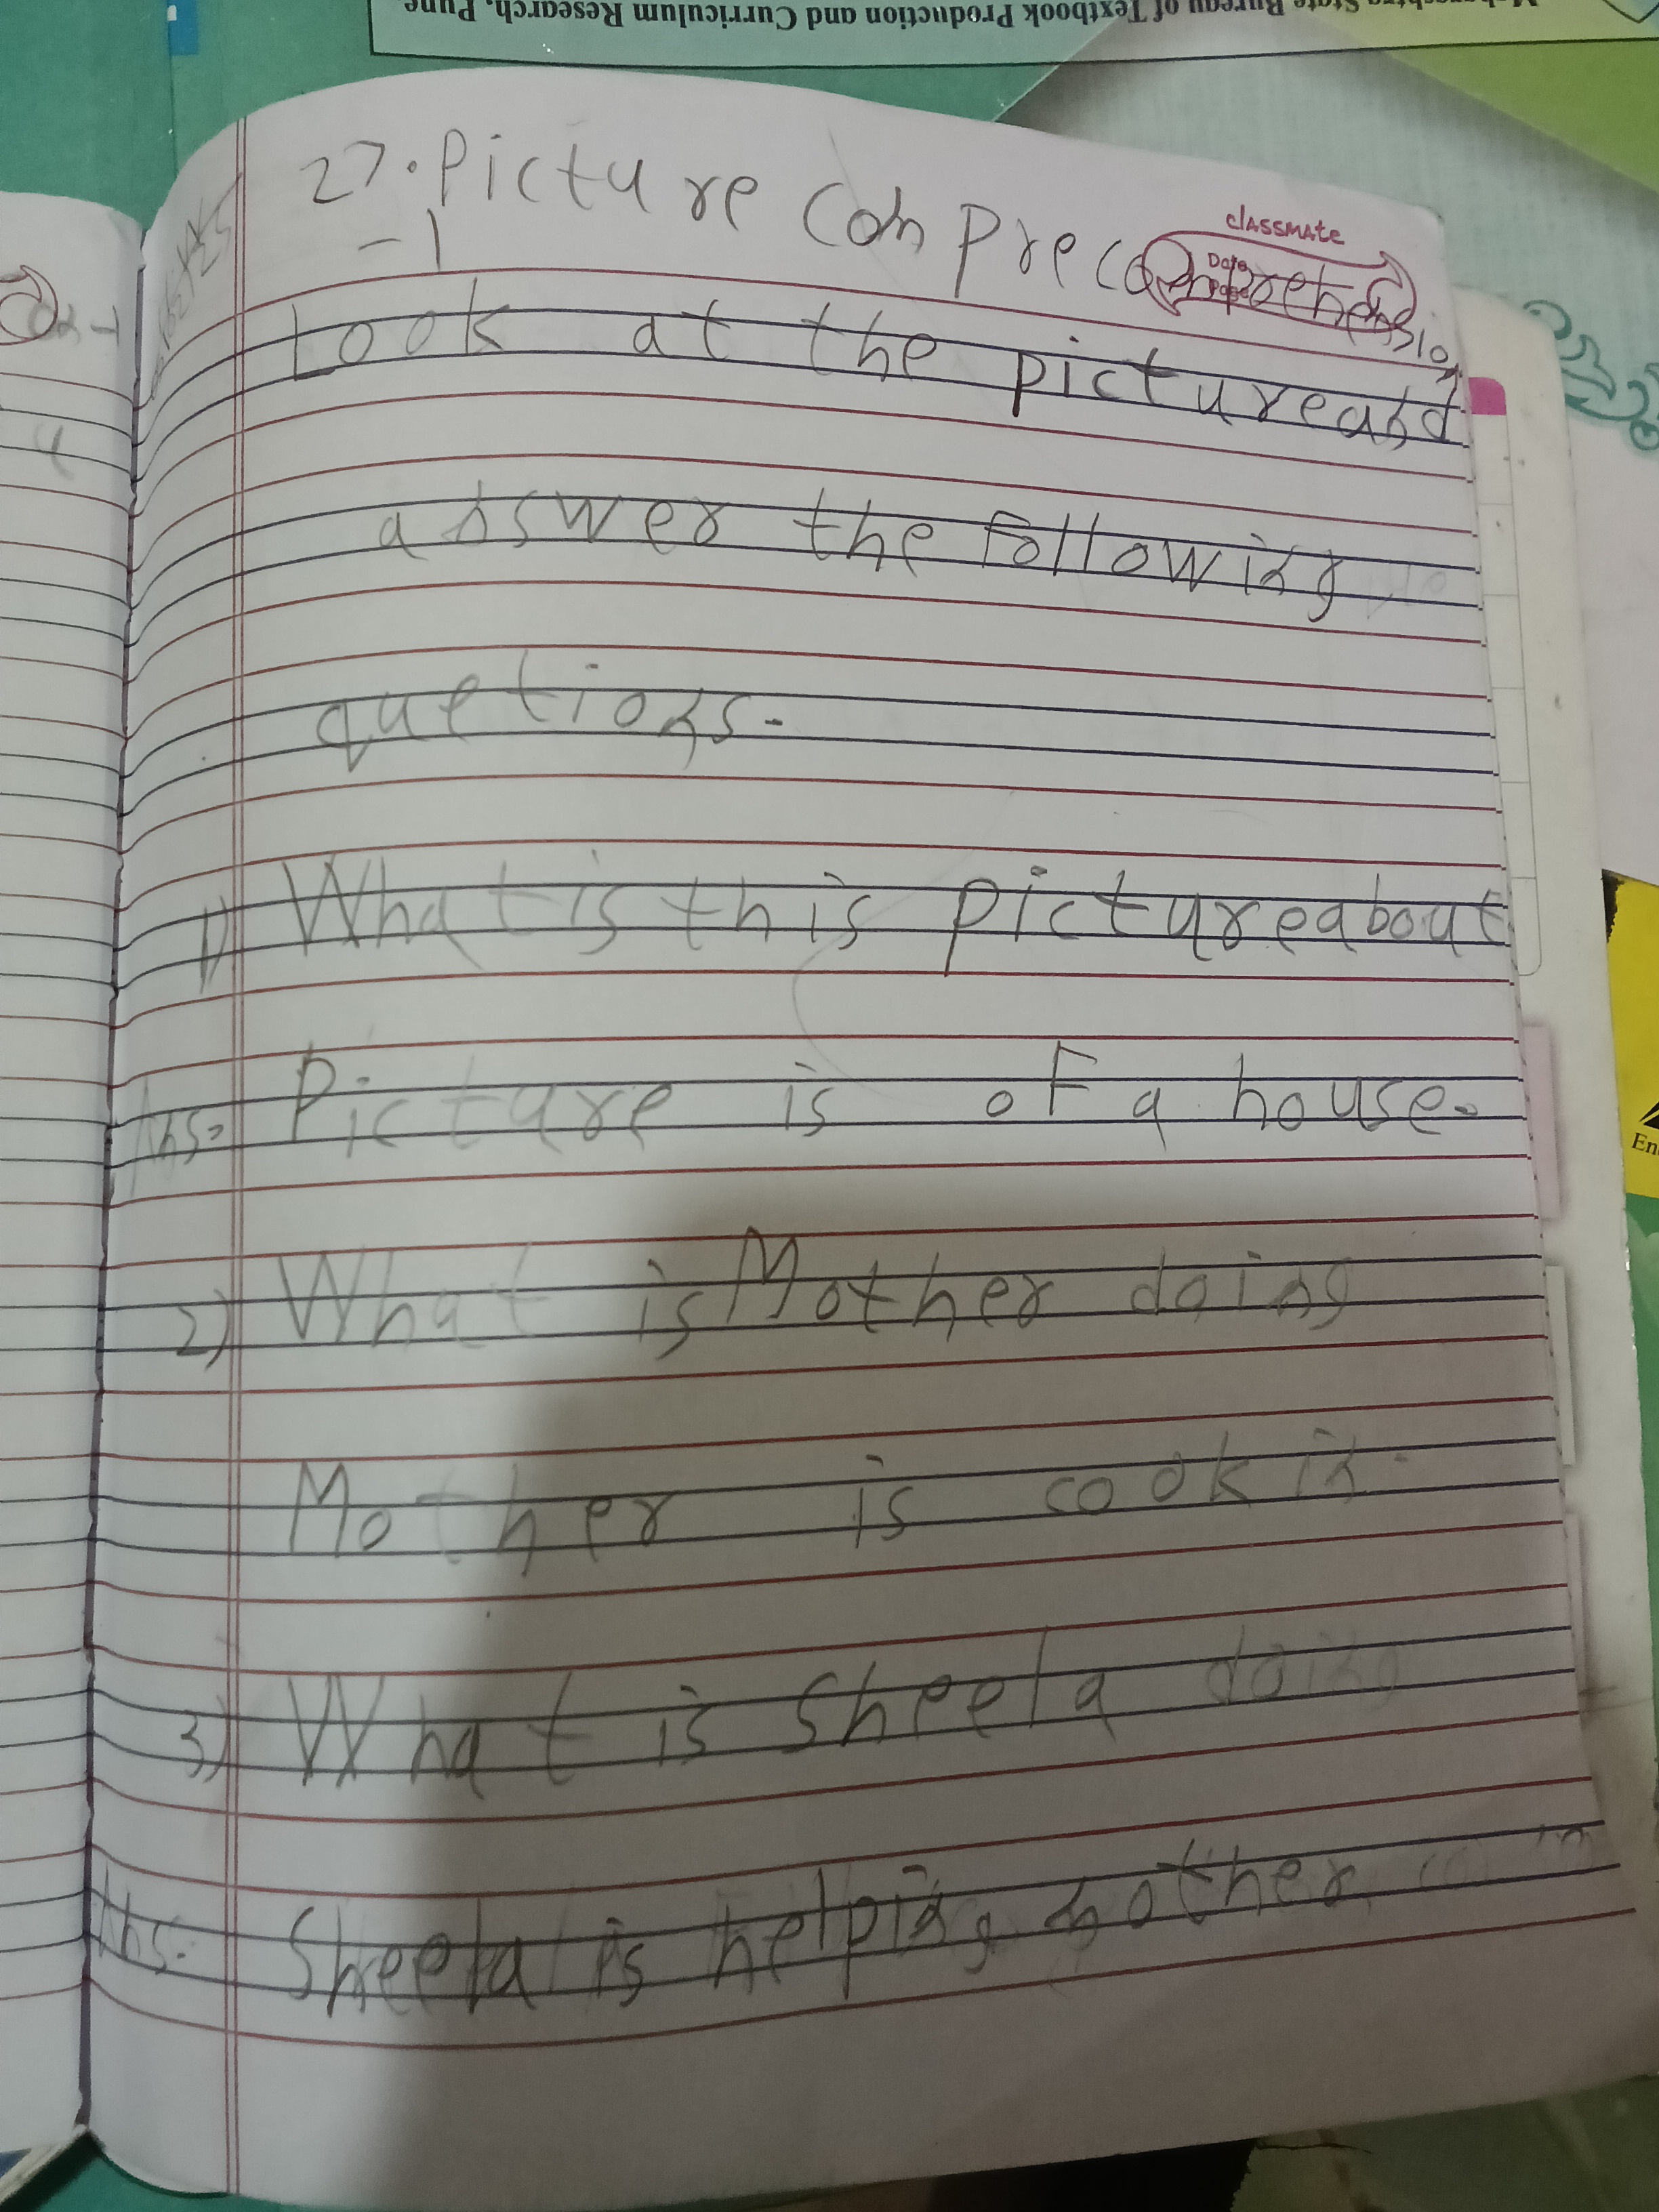 State Bureau of Textbook Production and Curriculum Research, Pune
classmate
Date
Page
27. Picture Conprecomprehension
-1
Look at the pictureand
answer the following
quetions.
1) What is this pictureabout
Ans. Picture is of a house.
2) What is Mother doing
Mother is cookin.
3) What is Sheela doing
Ans. Sheela is helping mother